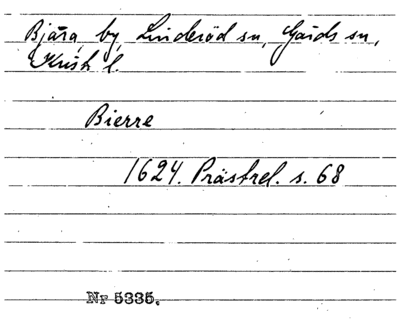 Bjära, by, Linderöd sn, Gärds sn,
Krist l.
Bierre
1624. Prästrel. s. 68
Nr 5335.